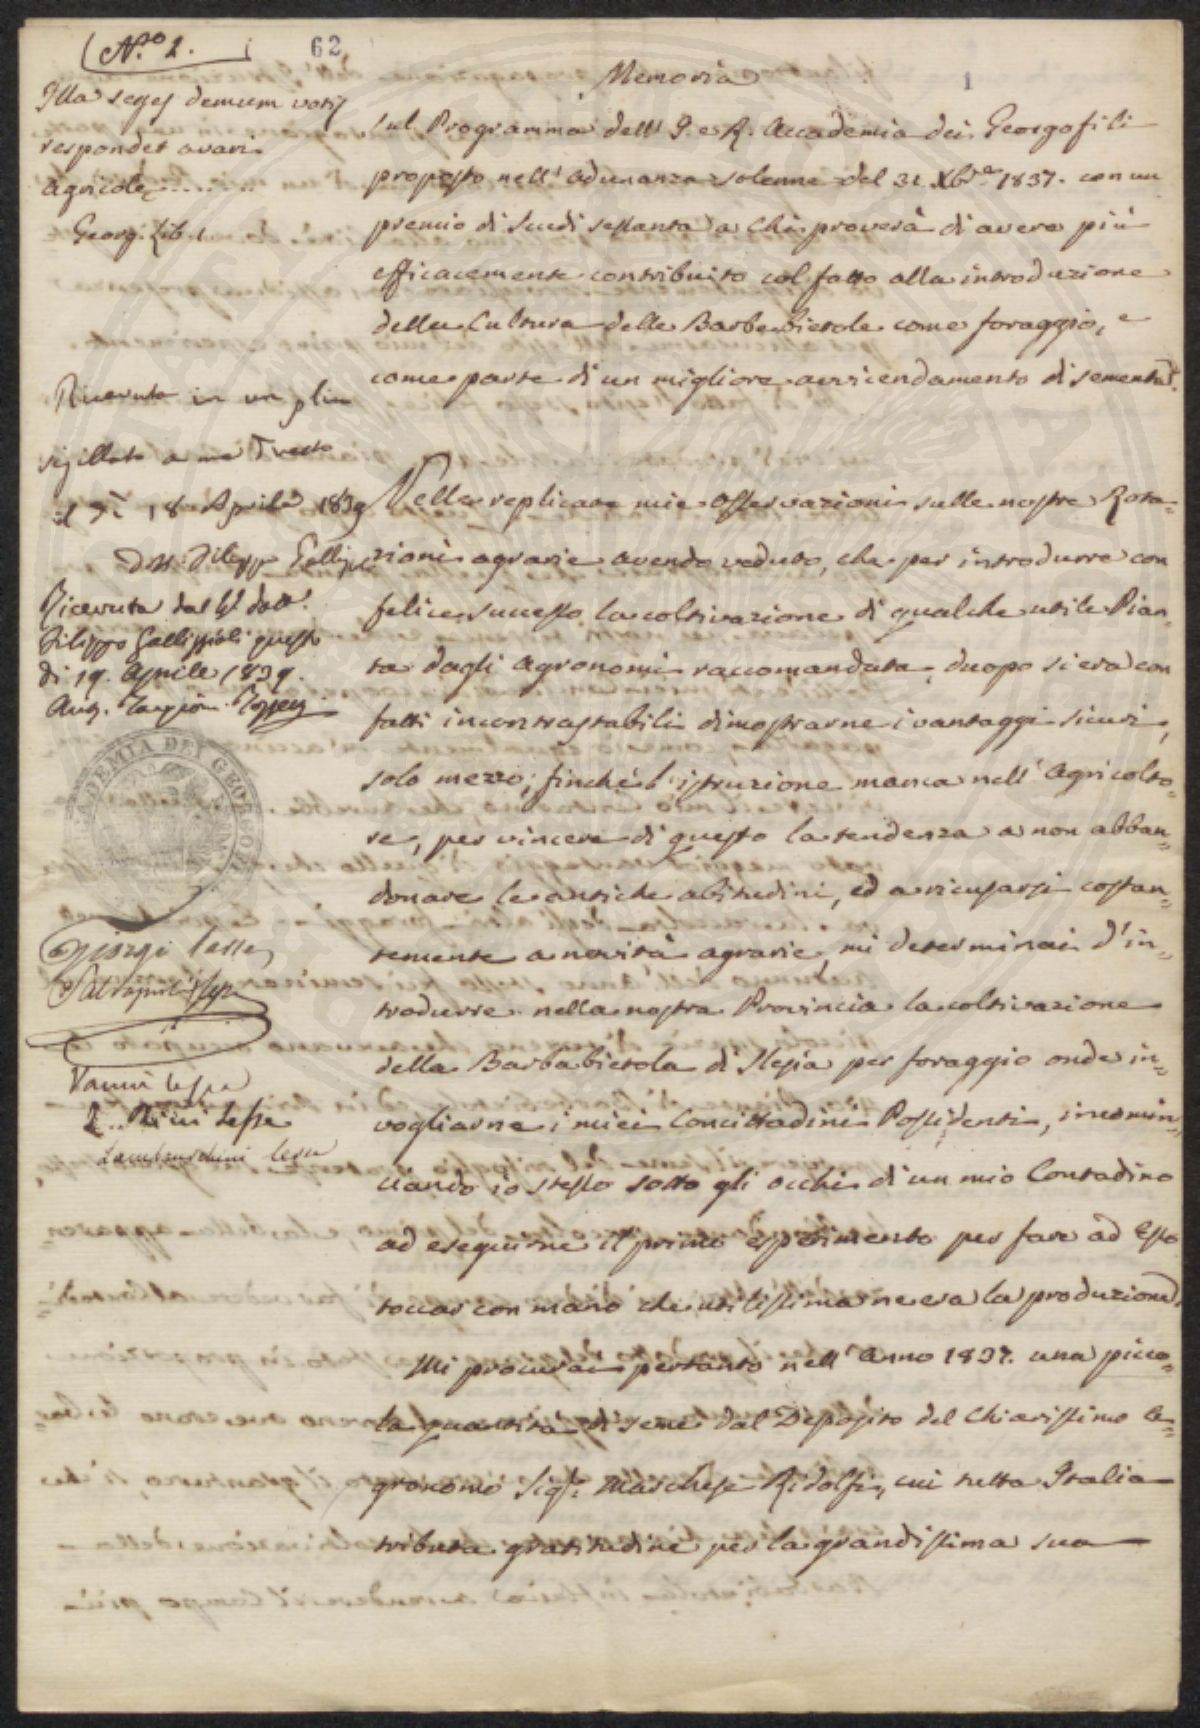 N.o 1.
62
1
Illa seges demum votis
respondet avari
Agricolę........
Georg. Lib. 1.
Ricevuta in un plico
sigillato a me diretto
il dì 18 Aprile 1839
Dott. Filippo Gallizioli
Ricevuta dal S. dott.
Filippo Gallizioli questo
dì 19. Aprile 1839.
Ant. Targioni Tozzetti
ACCADEMIA DEI GEORGOFILI
Giorgi lesse
lesse
Vannii lesse
L. Ridi lesse
Lambruschini lesse
Memoria
sul Programma dell' I. e R. Accademia dei Georgofili
proposto nell' adunanza solenne del 31. Xbre 1837. con un
premio di Scudi sessanta a chi proverà di avere più
efficacemente contribuito col fatto alla introduzione
della Cultura delle Barbebietole come foraggio, e
come parte di un migliore avvicendamento di sementa.
Nelle replicate mie Osservazioni sulle nostre Rota=
zioni agrarie avendo veduto, che per introdurre con
felice successo la coltivazione di qualche utile Pian=
ta dagli Agronomi raccomandata, duopo si era con
fatti incontrastabili dimostrarne i vantaggi sicuri,
solo mezzo, finchè l'istruzione manca nell' Agricolto=
re, per vincere di questo la tendenza a non abban=
donare le antiche abitudini, ed a ricusarsi costan=
temente a novità agrarie, mi determinai d'in=
trodurre nella nostra Provincia la coltivazione
della Barbabietola di Slesia per foraggio onde in=
vogliarne i miei Concittadini Possidenti, incomin=
ciando io stesso sotto gli occhi di un mio Contadino
ad eseguirne il primo esperimento per fare ad Esso
toccar con mano che utilissima ne era la produzione.
Mi procurai pertanto nell' Anno 1837. una picco=
la quantità di seme dal Deposito del Chiarissimo A=
gronomo Sigr. Marchese Ridolfi, cui tutta Italia
tributa gratitudine per la grandissima sua